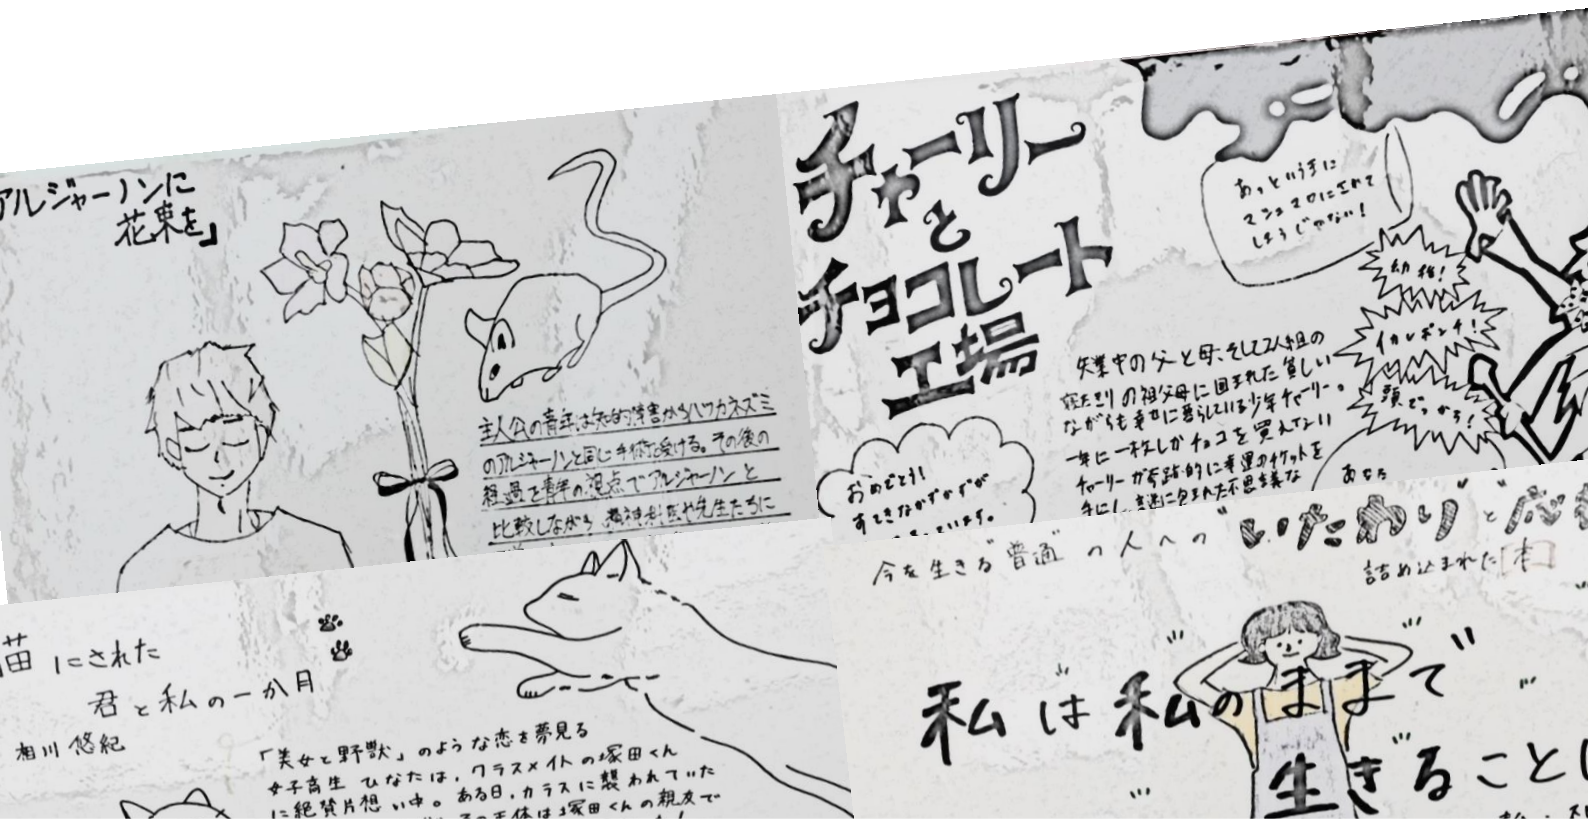 アルジャーノンに
花束を」
主人公の青年は知的障害からハツカネズミ
のアルジャーンと同じ手術を受ける。その後の
経過を青年の視点でアルジャーノンと
比較しながら、精神科医や先生たちに
チャーリー
と
チョコレート
工場
あっというまに
マシュマロにされて
しまうじゃない!
幼稚!
イカレポンチ!
頭でっかち!
失業中の父と母、そして2人組の
寝たきりの祖父母に囲まれた貧しい
ながらも幸せに暮らしている少年チャーリー。
一年に一枚しかチョコを買えない
チャーリーが奇跡的に幸運のチケットを
手にし、謎に包まれた不思議な
おめでとう!
すてきなかずかずが
っています。
あなた
猫にされた
君と私の一か月
相川悠紀
「美女と野獣」のような恋を夢見る
女子高生 ひなたは、クラスメイトの塚田くん
に絶賛片想い中。ある日、カラスに襲われていた
の正体は塚田くんの親友で
今を生きる"普通"の人への"いたわり"と応
詰め込まれた[本]
私は私のままで
生きることに